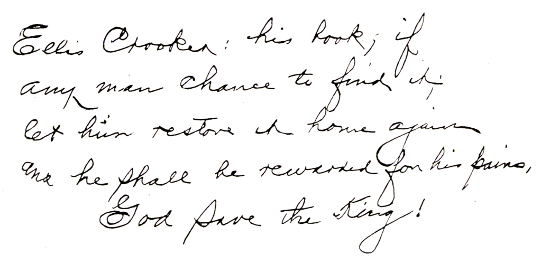 Ellis Crooker: his book; if
any man chance to find it;
let him restore it home again
and he shall be rewarded for his pains,
God save the King!